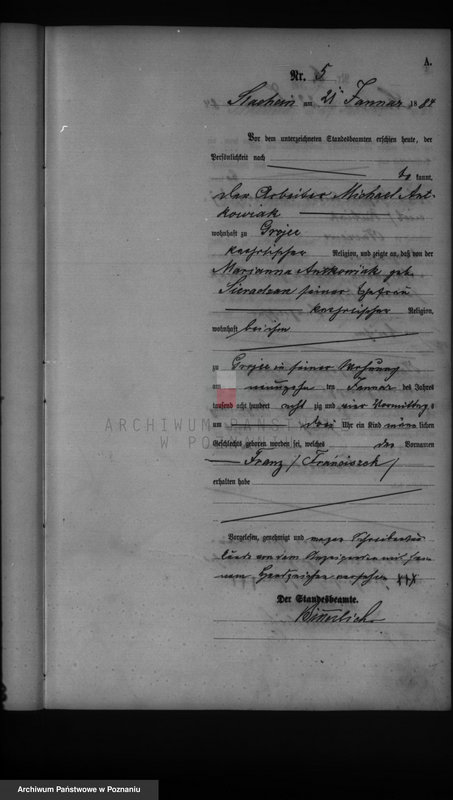 A.
Nr. 5
am 21 Januar 1884
Vor dem unterzeichneten Standesbeamten erschien heute, der
Persönlichkeit nach
be kannt,
der Arbeiter Michael Ant-
kowiak
wohnhaft zu Grojec
katholischer Religion, und zeigte an, daß von der
Marjanna Antkowiak geb.
seiner Ehefrau
katholischer Religion,
wohnhaft bei ihm
zu Grojec in seiner Wohnung
am neunzehn ten Januar des Jahres
tausend acht hundert acht zig und vier Vormittag s
um drei Uhr ein Kind männ lichen
Geschlechts geboren worden sei, welches den Vornamen
Franz / Franciszek /
erhalten habe
Vorgelesen, genehmigt und wegen Schreibens
von dem Anzeigenden mit sei-
nem Handzeichen versehen. +++
Der Standesbeamte.
ARCHIWUM PAŃSTWOWE
W POZNANIU
Archiwum Państwowe w Poznaniu